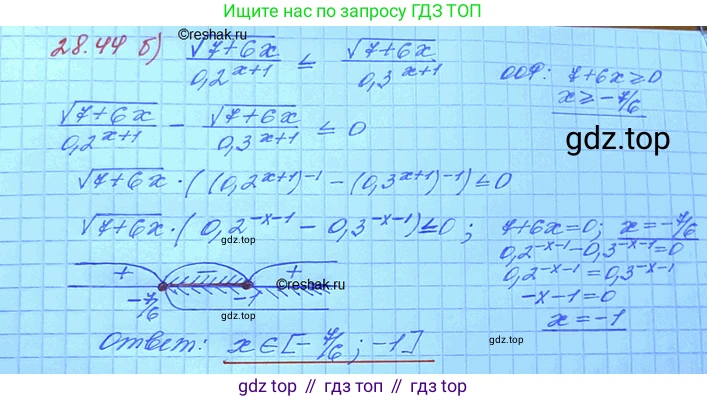 Ищите нас по запросу ГДЗ ТОП
28.44 б) √(7+6x) / 0,2^(x+1) ≤ √(7+6x) / 0,3^(x+1)
©reshak.ru
ООФ: 7+6x≥0
x≥-7/6
gdz.top
√(7+6x) / 0,2^(x+1) - √(7+6x) / 0,3^(x+1) ≤ 0
√(7+6x) · ((0,2^(x+1))^-1 - (0,3^(x+1))^-1) ≤ 0
√(7+6x) · (0,2^(-x-1) - 0,3^(-x-1)) ≤ 0;
gdz.top
7+6x=0; x=-7/6
0,2^(-x-1) - 0,3^(-x-1) = 0
0,2^(-x-1) = 0,3^(-x-1)
-x-1=0
x=-1
+ - +
©reshak.ru
-7/6 -1
gdz.top
Ответ: x∈[-7/6; -1]
gdz.top
gdz top // гдз топ // gdz.top